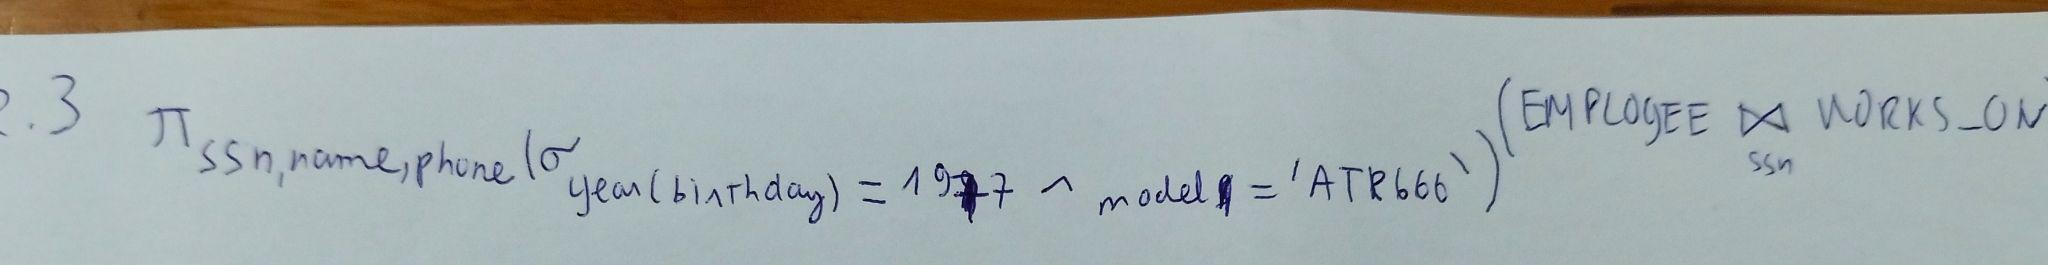 2.3 π ssn,name,phone (σ year(birthday) = 1977 ^ model = 'ATR666') (EMPLOYEE ⋈ ssn WORKS_ON